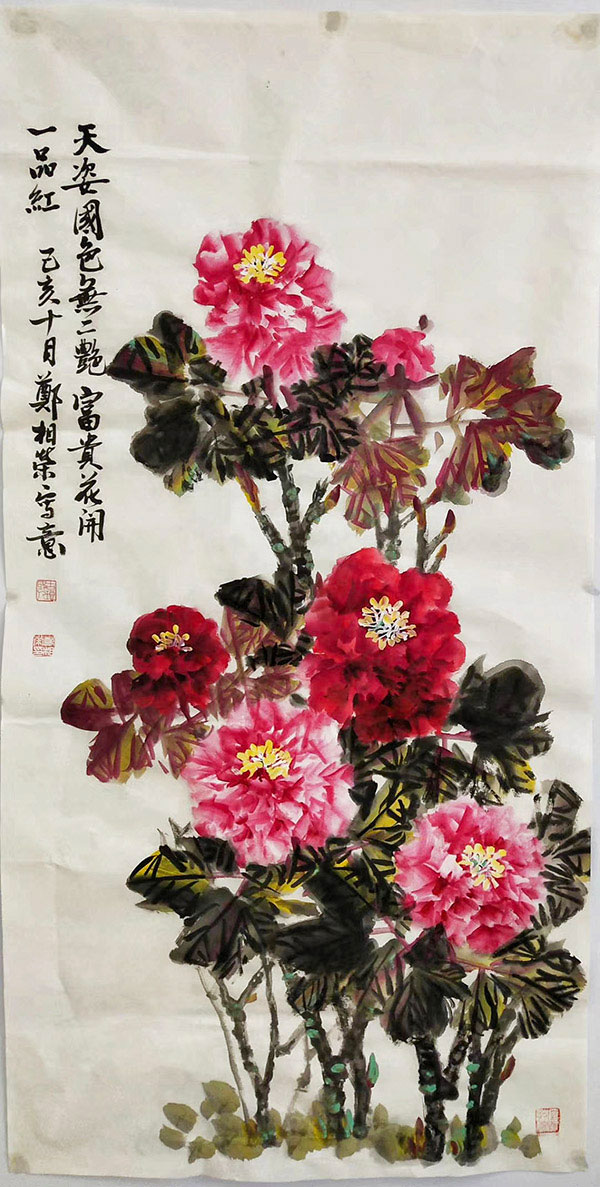 天姿國色無二艷 富貴花開
一品紅 己亥十月鄭相榮寫意